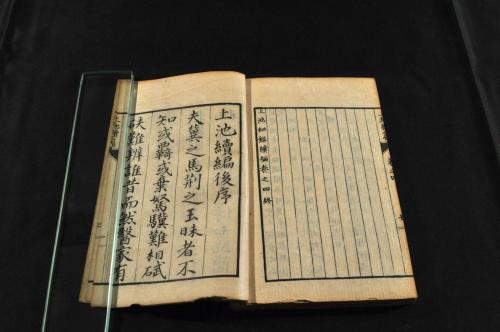 上池續編卷之四終
上池續編後序
夫冀之馬荆之玉昧者不
知或羈或棄駑驥難相碔
砆難辨誰昔而然醫家有